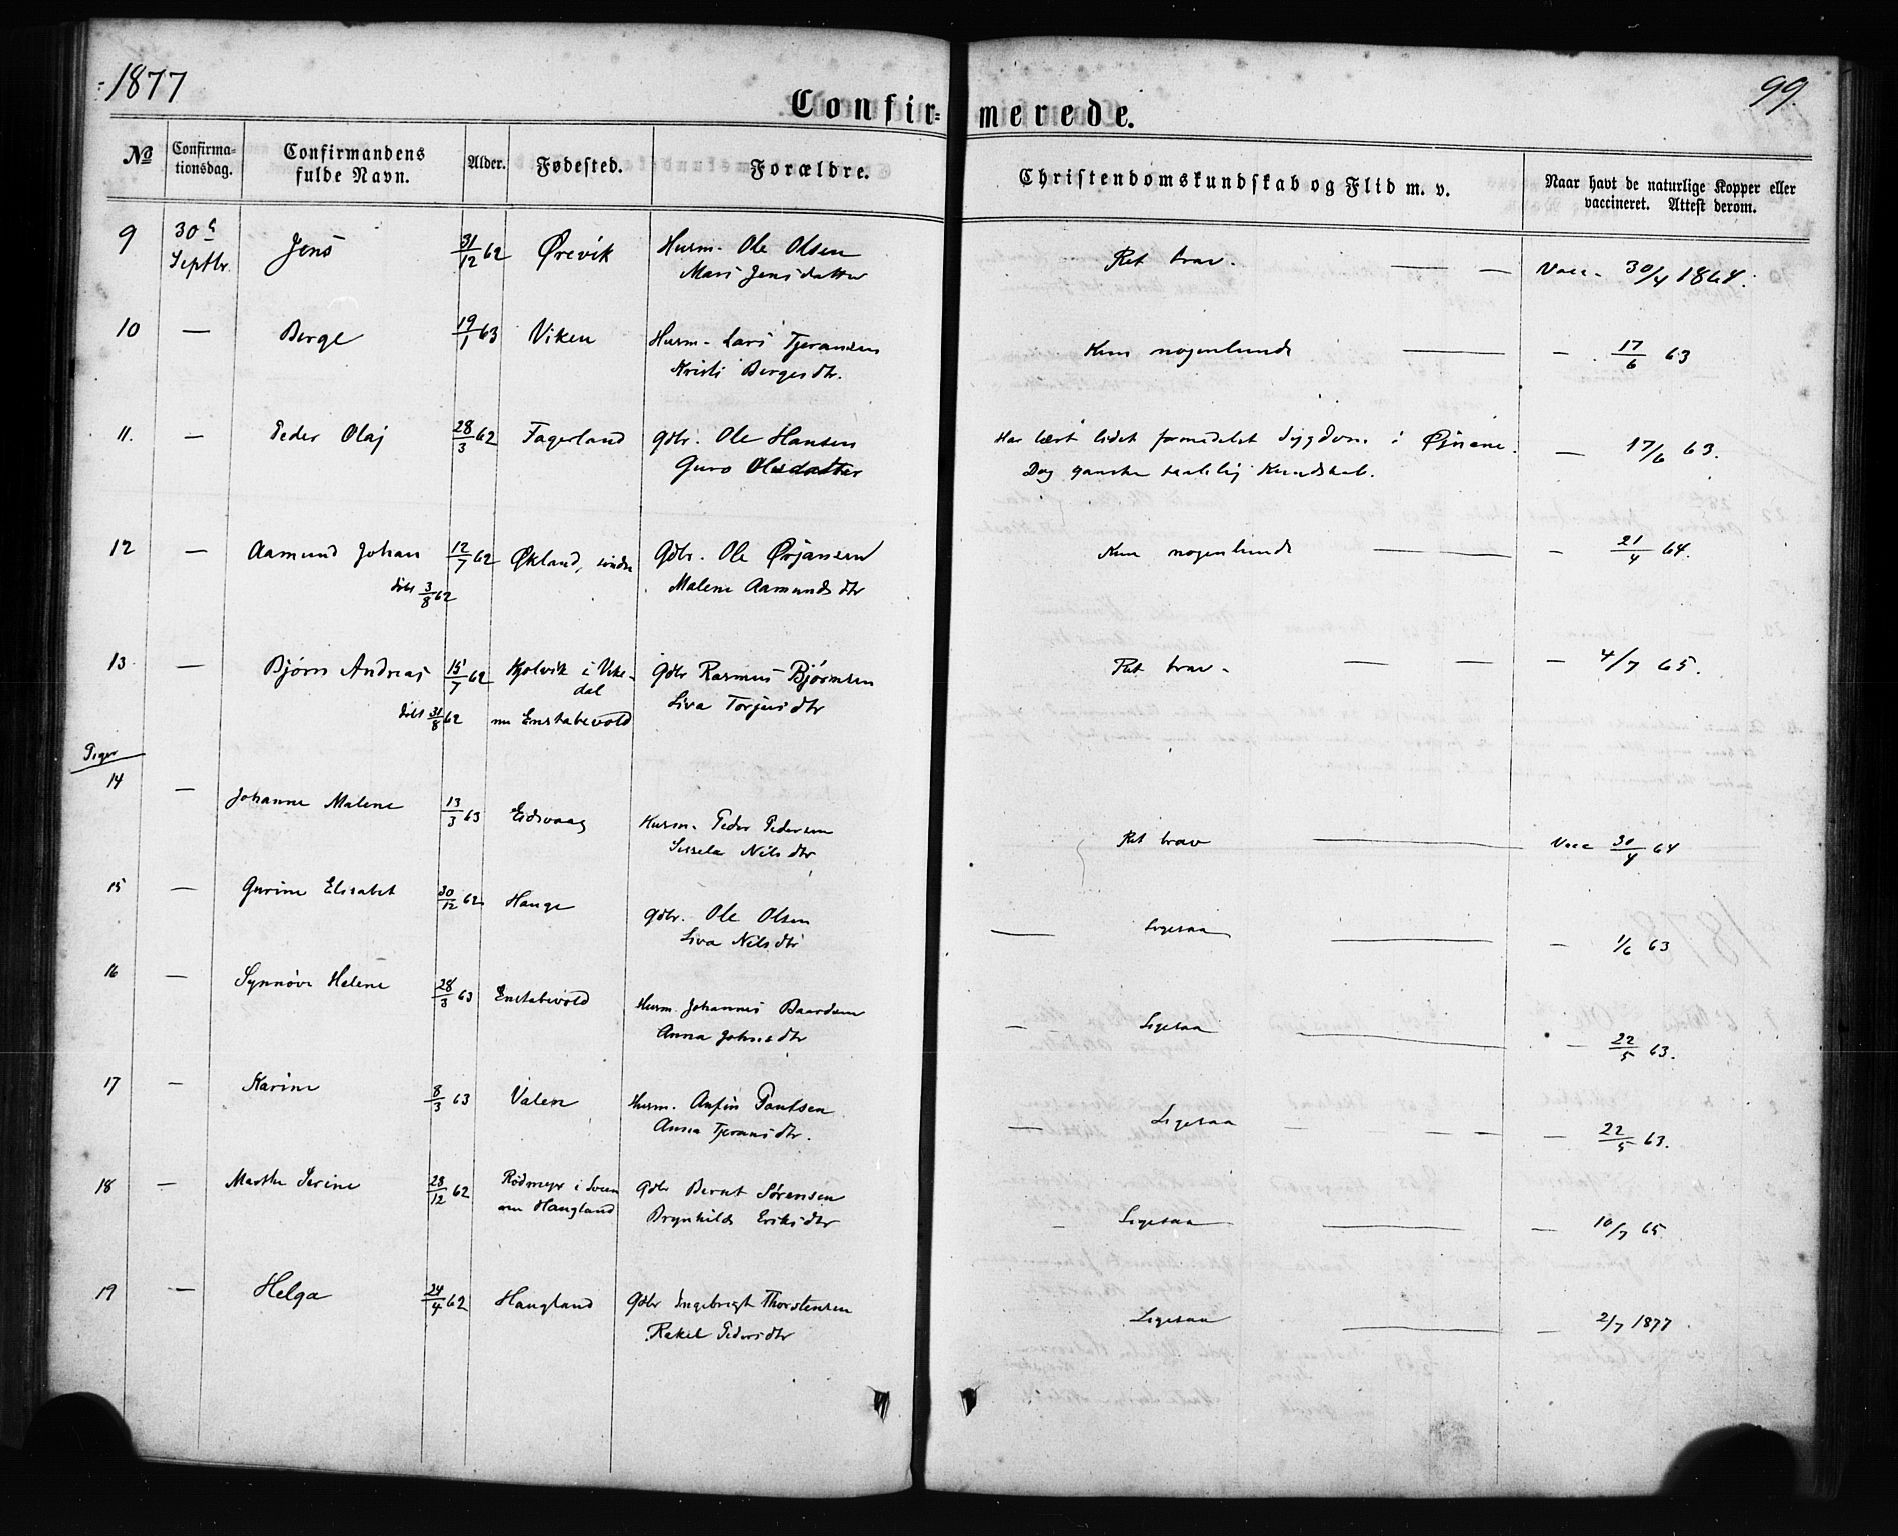 1877
99.
Confir- merede.
No Confirma-tionsdag. Confirmandens fulde Navn. Alder. Fødested. Forældre. Christendomskundskab og Flid m. v. Naar havt de naturlige Kopper eller vaccineret. Attest derom.
9 30 Septbr. Jens 31/12 62 Ørevik Husm. Ole Olsen Ret brav. — — Vacc. 30/4 1864.
Mari Jensdatter
10 — Berge 19/1 63 Viken Husm. Lars Tjeransen Kun nogenlunde — — 17/6 63
Kristi Bergesdtr.
11. — Peder Olaj 28/3 62 Fagerland Gdbr. Ole Hansen Har lært lidet formedelst Sygdom i Øjnene. — 17/6 63.
Guro Olsdatter Dog ganske taalelig Kundskab.
12 — Aamund Johan 12/7 62 Økland, søndre Gdbr. Ole Ørjansen Kun nogenlunde — — 21/4 64.
døbt 3/8 62 Malene Aamundsdtr
13. — Bjørn Andreas 15/7 62 Kjolvik i Vikedal Gdbr Rasmus Bjørnsen Ret brav — — — — 4/7 65.
døbt 31/8 62 nu Enstabevold Siva Torjusdtr
Piger
14 — Johanne Malene 13/3 63 Eidsvaag Husm. Peder Pedersen Ret brav — Vacc 30/4 64
Sissela Nilsdtr
15 — Gurine Elisabet 30/12 62 Hauge Gdbr. Ole Olsen — Ligesaa — — 1/6 63
Siva Nilsdtr
16 — Synnøve Helene 28/3 63 Enstabevold Husm. Johannes Baardsen — Ligesaa — — 22/5 63.
Anna Johnsdtr
17 — Karine 8/3 63 Valen Husm. Anfin Poulsen — Ligesaa — — — — 22/5 63.
Anna Tjeransdtr.
18 — Marthe Serine 28/12 62 Gdbr Bernt Sørensen — Ligesaa — — 10/7 65
nu Haugland Brynhilde Eriksdtr
19 — Helga 24/4 62 Haugland Gdbr Ingebrigt Thorstensen Ligesaa — — 2/7 1877.
Rakel Pedersdtr